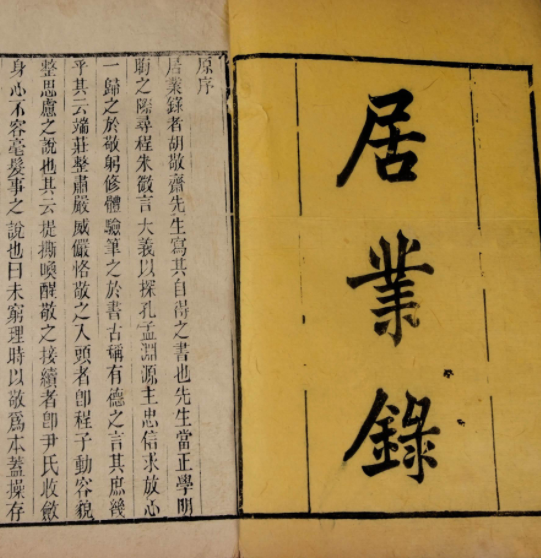 居業錄
原序
居業錄者胡敬齋先生寫其自得之書也先生當正學明
晦之際尋程朱微言大義以探孔孟淵源主忠信求放心
一歸之於敬躬修體驗筆之於書古稱有德之言其庶幾
乎其云端莊整肅嚴威儼恪敬之入頭者卽程子動容貌
整思慮之說也其云提撕喚醒敬之接續者卽尹氏收斂
身心不容毫髮事之說也曰未窮理時以敬爲本蓋操存